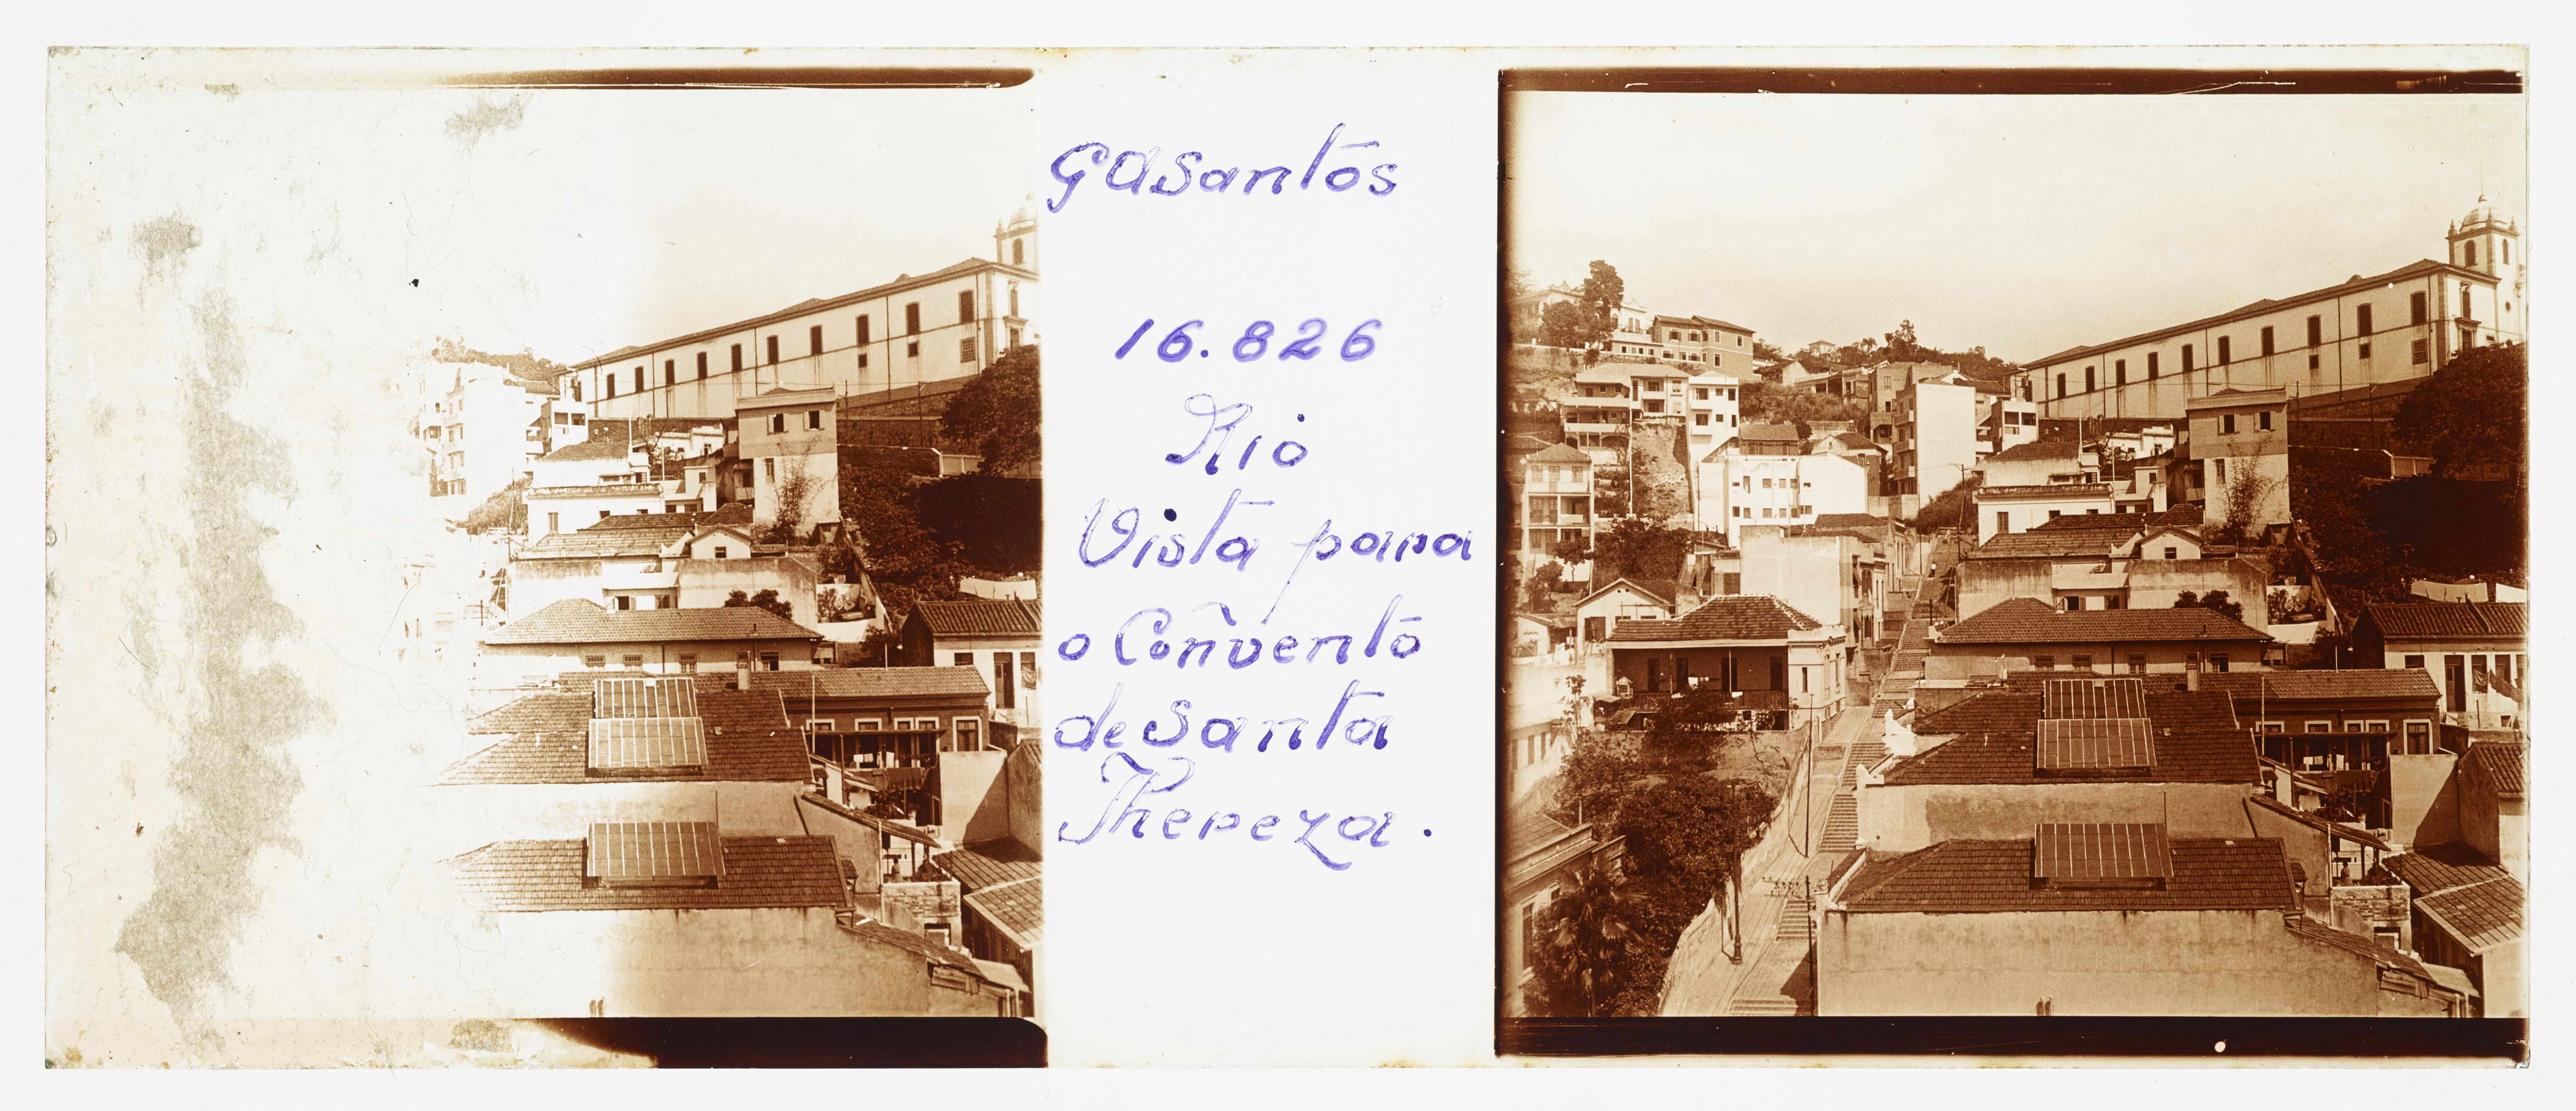 GASantos
16.826
Rio
Vista para
o Convento
de Santa
Thereza.